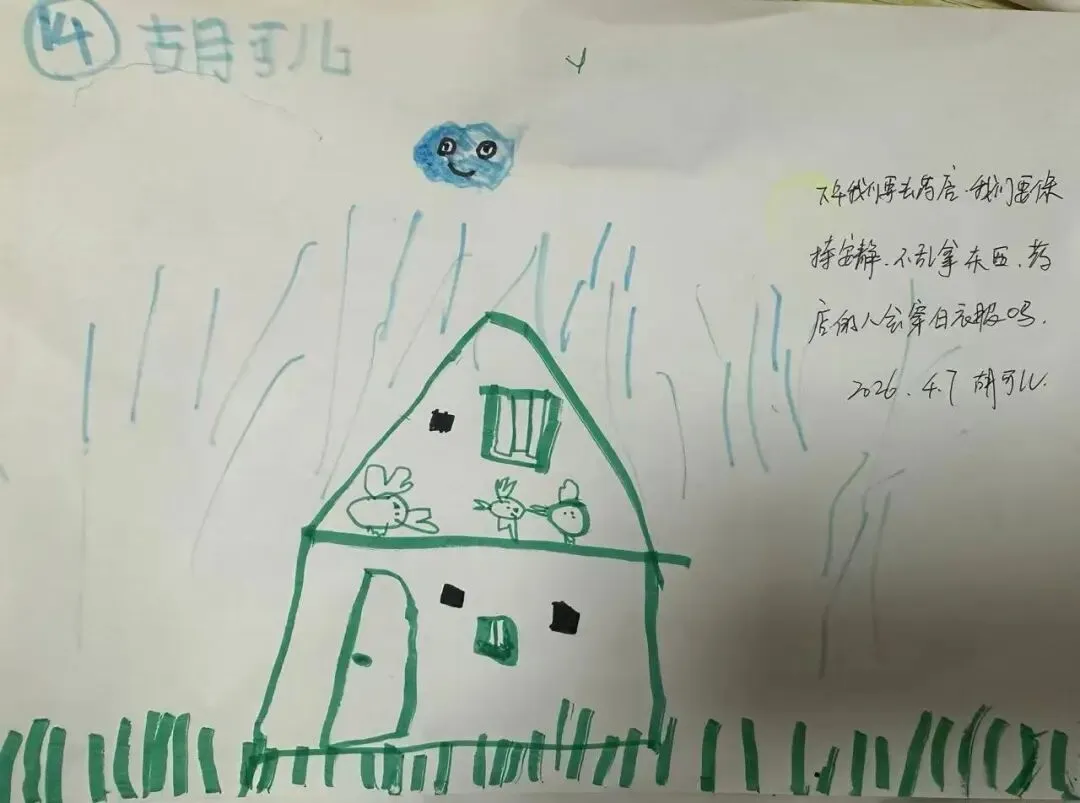 14 胡可儿
下午我们要去药店.我们要保
持安静.不乱拿东西.药
店的人会穿白衣服吗.
2026.4.7 胡可儿.